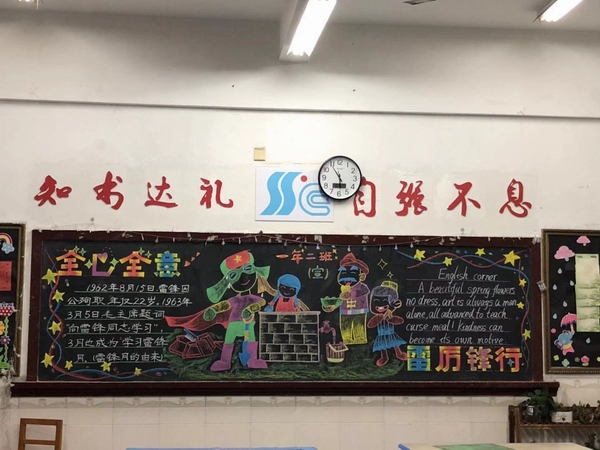 知书达礼
自强不息
全心全意
一年二班
(宣)
1962年8月15日,雷锋因
公殉职,年仅22岁,1963年
3月5日毛主席题词
"向雷锋同志学习",
3月也成为"学习雷锋
月"(雷锋月的由来)
English corner
A beautiful spring flowers
no dress, art is always a man
alone, all advanced to teach
curse meal! Kindness can
become its own motive
雷厉锋行